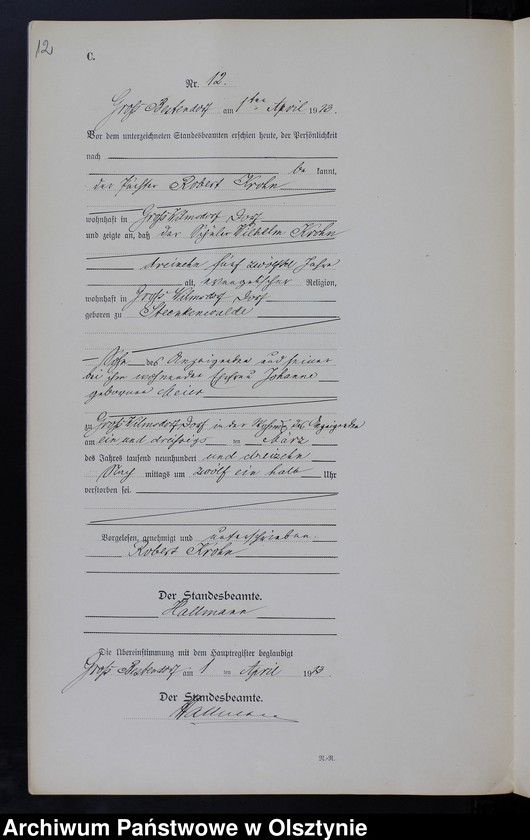 12
C.
Nr. 12.
Groß Bestendorf am 1ten April 1913.
Vor dem unterzeichneten Standesbeamten erschien heute, der Persönlichkeit
nach
be kannt,
der Robert Krohn
wohnhaft in Groß Wilmsdorf Dorf
und zeigte an, daß der Schüler Wilhelm Krohn
dreizehn fünf zwölftel Jahre
alt, evangelischer Religion,
wohnhaft in Groß Wilmsdorf Dorf
geboren zu
Sohn des Anzeigenden und seiner
bei ihm wohnenden Ehefrau Johanne
geborenen Meier
zu Groß Wilmsdorf Dorf in der Wohnung des Anzeigenden
am ein und dreißigsten März
des Jahres tausend neunhundert und dreizehn
Nach mittags um zwölf ein halb Uhr
verstorben sei.
Vorgelesen, genehmigt und unterschrieben.
Robert Krohn
Der Standesbeamte.
Hallmann
Die Übereinstimmung mit dem Hauptregister beglaubigt
Groß Bestendorf am 1 ten April 1913.
Der Standesbeamte.
Hallmann
N.-R.
Archiwum Państwowe w Olsztynie